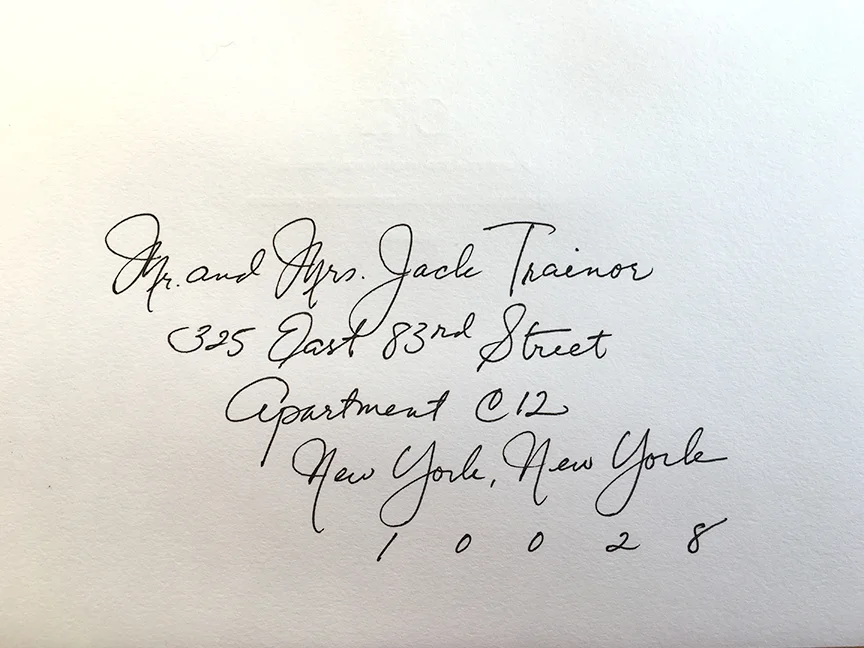 Mr. and Mrs. Jack Trainor
325 East 83rd Street
Apartment C12
New York, New York
1 0 0 2 8